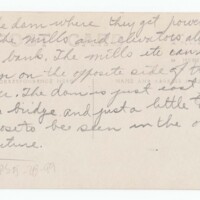 e dam where they get power
the mills and elevators al
bank. The mills etc can
on the opposite side of t
ce. The dam is just east
bridge and just a little t
ose to be seen in the
cture.